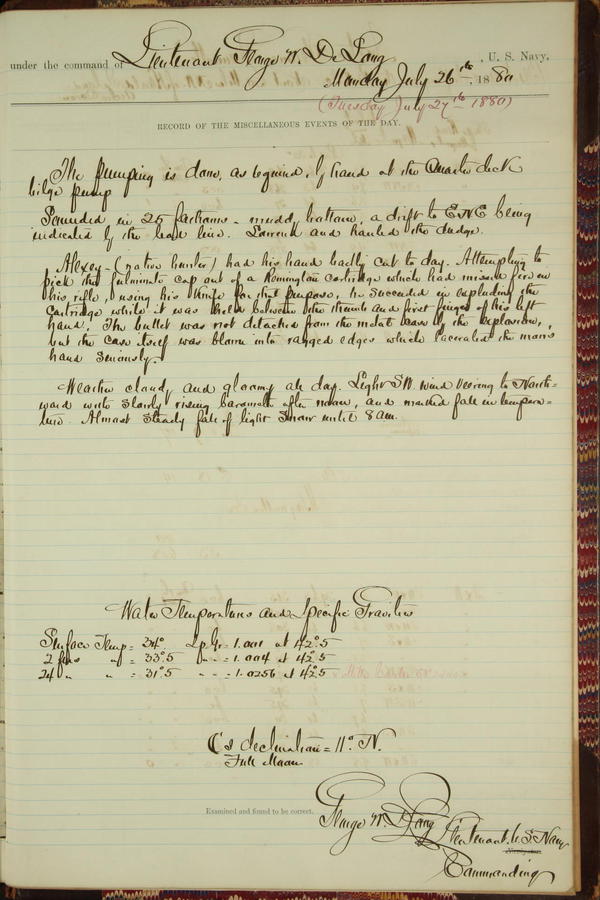 under the command of Lieutenant George W. De Long, U. S. Navy.
Monday July 26th, 1880
(Tuesday July 27th 1880)
RECORD OF THE MISCELLANEOUS EVENTS OF THE DAY.
The pumping is done, as required, by hand at the Quarter deck
bilge pump
Sounded in 25 fathoms - muddy bottom, a drift to ENE being
indicated by the lead line. Lowered and hauled the dredge.
Alexey - (native hunter) had his hand badly cut to day. Attempting to
pick the fulminate cap out of a Remington cartridge which had missed fire in
his rifle, using his knife for that purpose, he succeeded in exploding the
cartridge while it was held between the thumb and first finger of his left
hand. The bullet was not detached from the metal case by the explosion,
but the case itself was blown into ragged edges which lacerated the man's
hand seriously.
Weather cloudy and gloomy all day. Light SW wind veering to North=
ward with slowly rising barometer after noon, and marked fall in tempera=
ture. Almost steady fall of light snow until 8 am.
Water Temperatures and Specific Gravities
Surface Temp = 34° Sp Gr = 1.001 at 42°.5
2 fms " = 33°.5 " " = 1.004 at 42°.5
24 " " = 31°.5 " " = 1.0256 at 42°.5
☾'s declination = 11° N.
Full Moon
Examined and found to be correct.
George W. De Long Lieutenant, U.S. Navy
Commanding